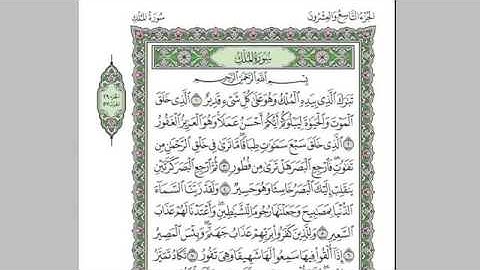 الجزء التاسع والعشرون
سورة الملك
سُورَةُ المُلْكِ
بِسْمِ اللَّهِ الرَّحْمَٰنِ الرَّحِيمِ
تَبَارَكَ الَّذِي بِيَدِهِ الْمُلْكُ وَهُوَ عَلَىٰ كُلِّ شَيْءٍ قَدِيرٌ ١ الَّذِي خَلَقَ
الْمَوْتَ وَالْحَيَاةَ لِيَبْلُوَكُمْ أَيُّكُمْ أَحْسَنُ عَمَلًا وَهُوَ الْعَزِيزُ الْغَفُورُ
٢ الَّذِي خَلَقَ سَبْعَ سَمَاوَاتٍ طِبَاقًا مَّا تَرَىٰ فِي خَلْقِ الرَّحْمَٰنِ مِن
تَفَاوُتٍ فَارْجِعِ الْبَصَرَ هَلْ تَرَىٰ مِن فُطُورٍ ٣ ثُمَّ ارْجِعِ الْبَصَرَ كَرَّتَيْنِ
يَنقَلِبْ إِلَيْكَ الْبَصَرُ خَاسِئًا وَهُوَ حَسِيرٌ ٤ وَلَقَدْ زَيَّنَّا السَّمَاءَ
الدُّنْيَا بِمَصَابِيحَ وَجَعَلْنَاهَا رُجُومًا لِّلشَّيَاطِينِ وَأَعْتَدْنَا لَهُمْ عَذَابَ
السَّعِيرِ ٥ وَلِلَّذِينَ كَفَرُوا بِرَبِّهِمْ عَذَابُ جَهَنَّمَ وَبِئْسَ الْمَصِيرُ
٦ إِذَا أُلْقُوا فِيهَا سَمِعُوا لَهَا شَهِيقًا وَهِيَ تَفُورُ ٧ تَكَادُ تَمَيَّزُ